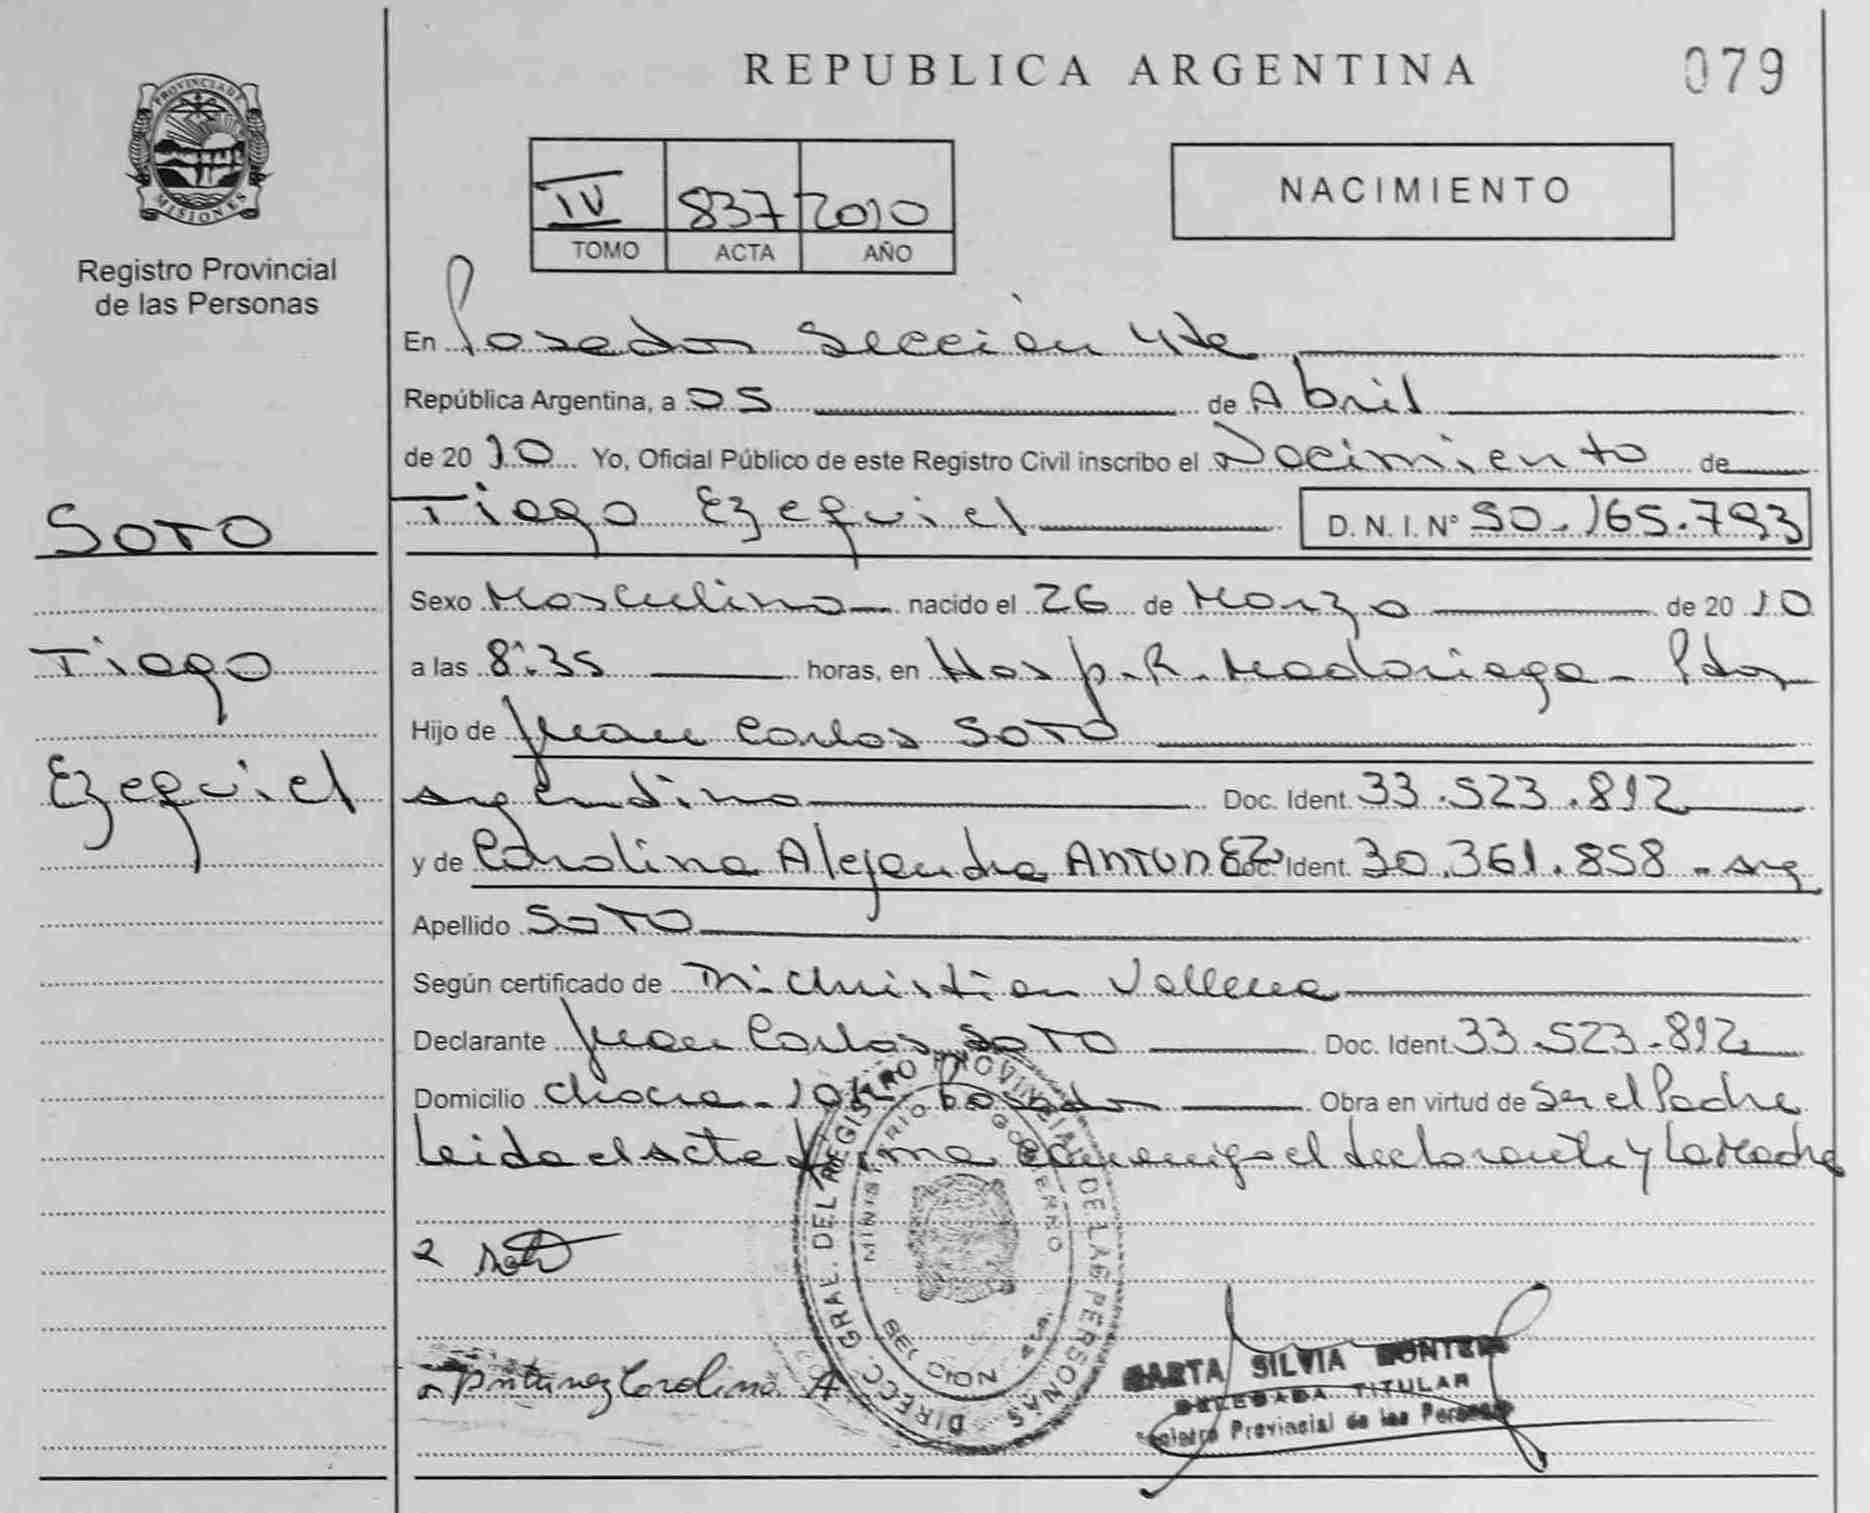 REPUBLICA ARGENTINA
079
PROVINCIA DE
MISIONES
Registro Provincial
de las Personas
IV 837 2010
TOMO ACTA AÑO
NACIMIENTO
En Posadas Sección 4ta
República Argentina, a 05 de Abril
de 2010 Yo, Oficial Público de este Registro Civil inscribo el Nacimiento de
SOTO
Tiago
Ezequiel
Tiago Ezequiel D. N. I. Nº 50.165.793
Sexo Masculino nacido el 26 de Marzo de 2010
a las 8:35 horas, en Hosp. R. Madariaga - Pdas
Hijo de Juan Carlos SOTO
argentino Doc. Ident. 33.523.812
y de Carolina Alejandra ANTUNEZ Doc. Ident. 30.361.858 - arg
Apellido SOTO
Según certificado de Christian
Declarante Juan Carlos SOTO Doc. Ident. 33.523.812
Domicilio chacra - Posadas Obra en virtud de ser el Padre
Leida el acta firma conmigo el declarante y la Madre
Antunez Carolina A
DIRECC. GRAL. DEL REGISTRO PROVINCIAL DE LAS PERSONAS
MINISTERIO GOBIERNO
SILVIA
DELEGADA TITULAR
Registro Provincial de las Personas